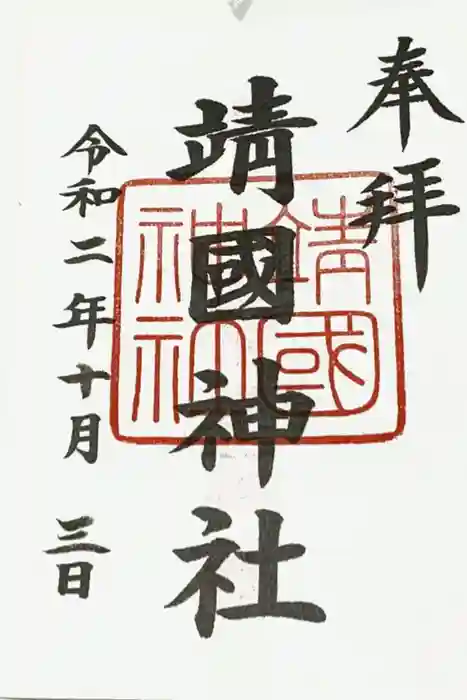 奉拝
靖國神社
靖國
神社
令和二年十月三日